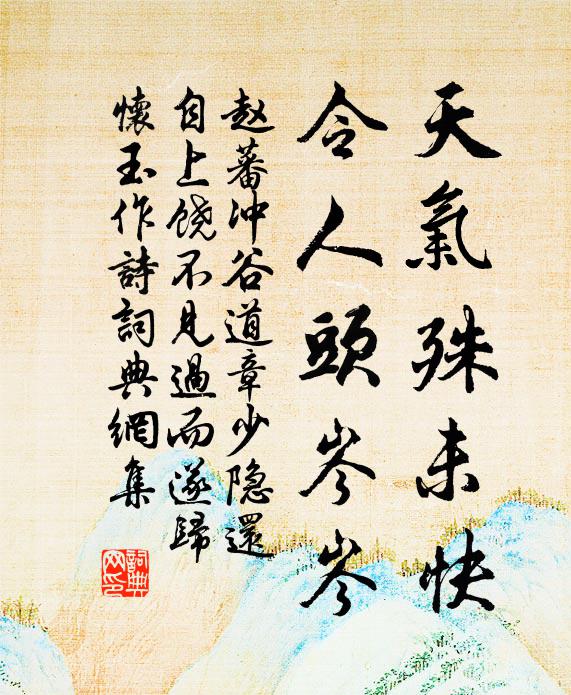 天氣殊未快
令人頭岑岑
赵蕃沖谷道章少隐還
自上饶不見過而遂歸
懷玉作詩詞典網集
詞典網印